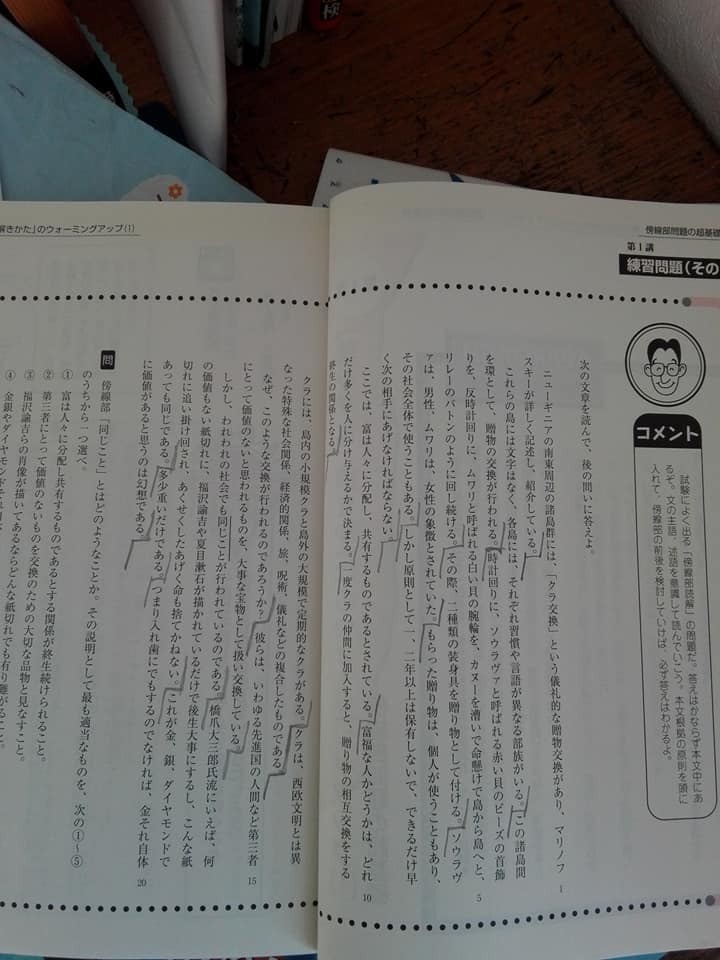 検
傍線部問題の超基礎
第1講
練習問題(その
コメント
試験によく出る「傍線部読解」の問題だ。答えはかならず本文中にあ
るぞ。文の主語・述語を意識して読んでいこう。本文根拠の原則を頭に
入れて、傍線部の前後を検討していけば、必ず答えはわかるよ。
次の文章を読んで、後の問いに答えよ。
ニューギニアの南東周辺の諸島群には、「クラ交換」という儀礼的な贈物交換があり、マリノフ 1
スキーが詳しく記述し、紹介している。
これらの島には文字はなく、各島には、それぞれ習慣や言語が異なる部族がいる。この諸島間
を環として、贈物の交換が行われる。時計回りに、ソウラヴァと呼ばれる赤い貝のビーズの首飾
りを、反時計回りに、ムワリと呼ばれる白い貝の腕輪を、カヌーを漕いで命懸けで島から島へと、 5
リレーのバトンのように回し続ける。その際、二種類の装身具を贈り物として付ける。ソウラヴ
ァは、男性、ムワリは、女性の象徴とされていた。もらった贈り物は、個人が使うこともあり、
その社会全体で使うこともある。しかし原則として一、二年以上は保有しないで、できるだけ早
く次の相手にあげなければならない。
ここでは、富は人々に分配し、共有するものであるとされている。富福な人かどうかは、どれ 10
だけ多くを人に分け与えるかで決まる。一度クラの仲間に加入すると、贈り物の相互交換をする
終生の関係となる。
解きかた」のウォーミングアップ(1)
クラには、島内の小規模クラと島外の大規模で定期的なクラがある。クラは、西欧文明とは異
なった特殊な社会関係、経済的関係、旅、呪術、儀礼などの複合したものである。
なぜ、このような交換が行われるのであろうか? 彼らは、いわゆる先進国の人間など第三者
にとって価値のないと思われるものを、大事な宝物として扱い交換している。 15
しかし、われわれの社会でも同じことが行われているのである。橋爪大三郎氏流にいえば、何
の価値もない紙切れに、福沢諭吉や夏目漱石が描かれているだけで後生大事にするし、こんな紙
切れに追い掛け回され、あくせくしたあげく命も捨てかねない。これが金、銀、ダイヤモンドで
あっても同じである。多少重いだけである。つまり入れ歯にでもするのでなければ、金それ自体
に価値があると思うのは幻想である。 20
問 傍線部「同じこと」とはどのようなことか。その説明として最も適当なものを、次の①~⑤
のうちから一つ選べ。
① 富は人々に分配し共有するものであるとする関係が終生続けられること。
② 第三者にとって価値のないものを交換のための大切な品物と見なすこと。
③ 福沢諭吉らの肖像が描いてあるならどんな紙切れでも有り難がること。
④ 金銀やダイヤモンド